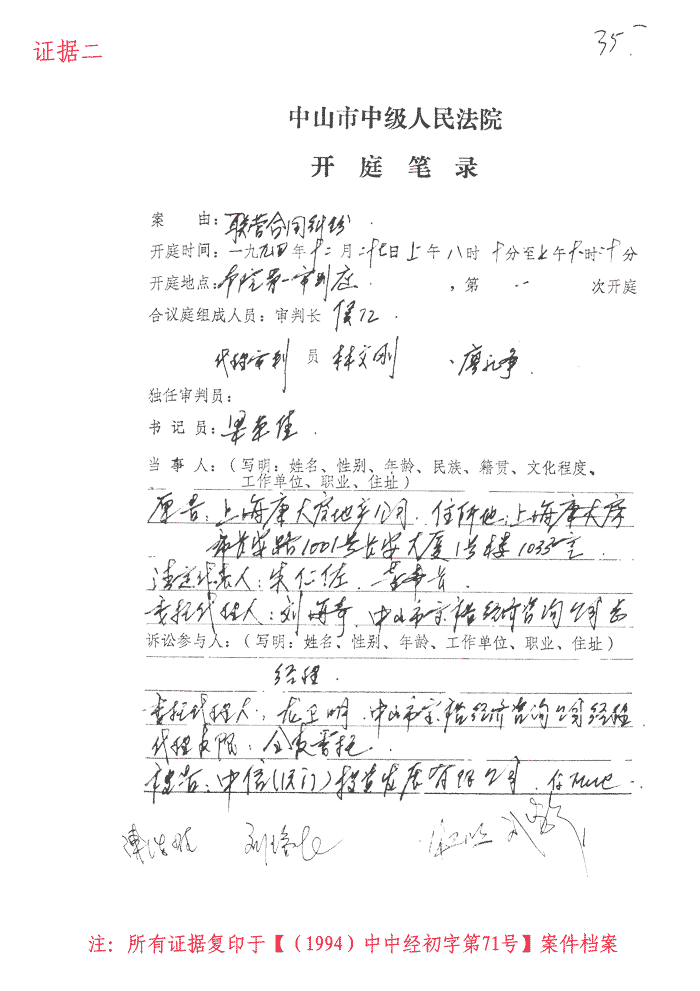 证据二
35
中山市中级人民法院
开 庭 笔 录
案 由：联营合同纠纷.
开庭时间：一九九四年十二月二十七日上午八时十分至上午十时十分
开庭地点：本院第一审判庭，第一次开庭
合议庭组成人员：审判长
代理审判员 林文刚、廖
独任审判员：
书记员：梁荣佳.
当事人：（写明：姓名、性别、年龄、民族、籍贯、文化程度、
工作单位、职业、住址）
原告：上海康大房地产公司. 住所地：上海康大房
市长安路1001号长安大厦1号楼1033室
法定代表人：朱仁任
委托代理人：刘海奇. 中山市京信经济咨询公司
诉讼参与人：（写明：姓名、性别、年龄、工作单位、职业、住址）
经理.
委托代理人：龙卫明. 中山市京信经济咨询公司经理
代理权限：全权委托.
被告：中信（厦门）投资发展有限公司.
注：所有证据复印于【（1994）中中经初字第71号】案件档案